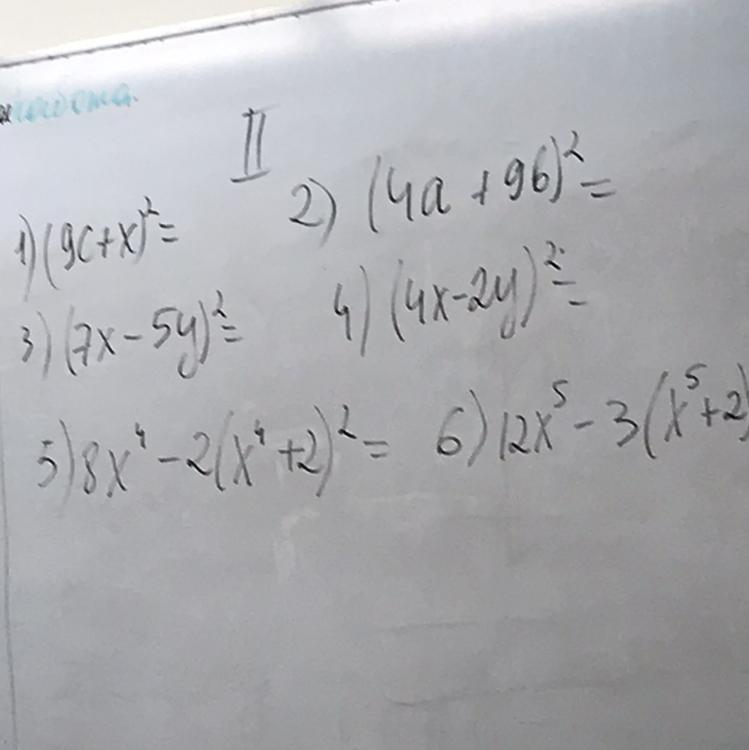 II
1) (9c+x)²= 2) (4a+9b)²=
3) (7x-5y)²= 4) (4x-2y)²=
5) 8x⁴-2(x⁴+2)²= 6) 12x⁵-3(x⁵+2)